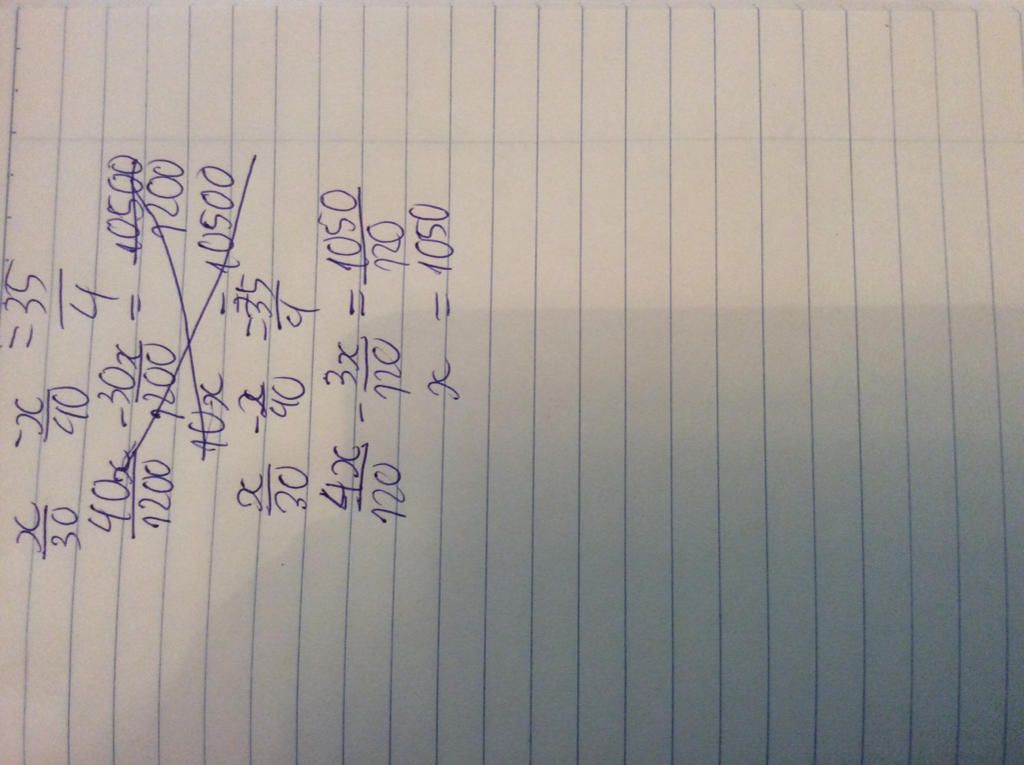 x/30 - x/40 = 35/4
40x/1200 - 30x/1200 = 10500/1200
10x = 10500
x/30 - x/40 = 35/4
4x/120 - 3x/120 = 1050/120
x = 1050